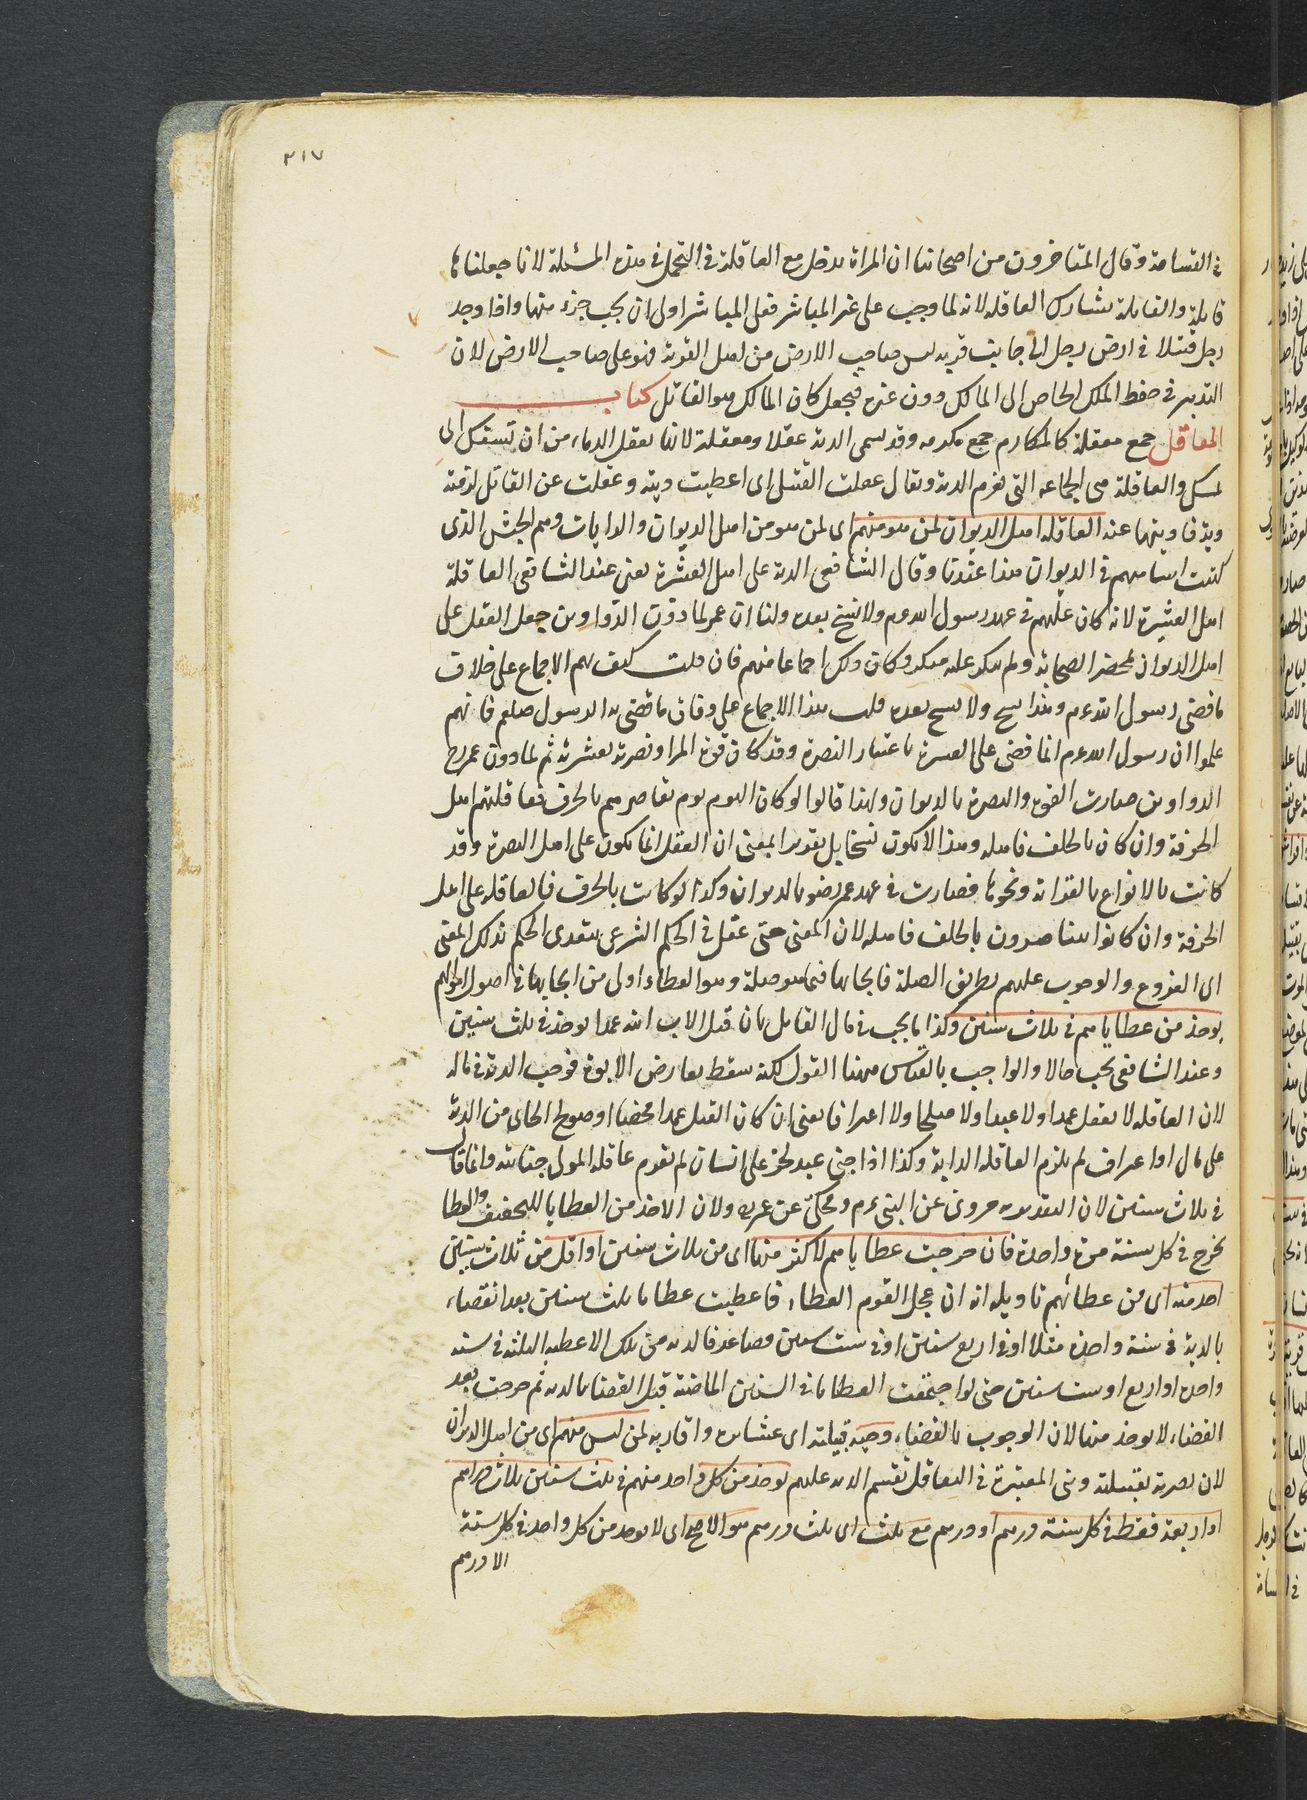 ٣١٧
في القسامة وقال المتاخرون من اصحابنا ان المراة تدخل مع العاقلة في التحمل في هذه المسئلة لانا جعلناها
قاتلة والقاتلة تشارك العاقلة لانه لما وجب على غير المباشر فعلى المباشر اولى ان يجب جزء منها واذا وجد
رجل قتيلا في ارض رجل الى جانب قرية ليس صاحب الارض من اهل القرية فهو على صاحب الارض لان
التدبير في حفظ الملك الخاص الى المالك دون غيره فيجعل كان المالك هو القاتل كتاب
المعاقل جمع معقلة كالمكارم جمع مكرمه وقد يسمى الدية عقلا ومعقلة لانها تعقل الدماء من ان تسفك اى
تمسك والعاقلة هى الجماعه التى تغرم الدية ويقال عقلت القتيل اى اعطيت ديته وعقلت عن القاتل لزمته
دية فاديتها عنه العاقلة اهل الديوان لمن هو منهم اى لمن هو من اهل الديوان والرايات وهم الجيش الذى
كتبت اساميهم في الديوان هذا عندنا وقال الشافعى الدية على اهل العشيرة يعنى عند الشافعى العاقلة
اهل العشيرة لانه كان عليهم في عهد رسول الله عم ولا نسخ بعده ولنا ان عمر لما دون الدواوين جعل العقل على
اهل الديوان بمحضر الصحابة ولم ينكر عليه منكر وكان ذلك اجماعا منهم فان قلت كيف لهم الاجماع على خلاف
ما قضى رسول الله عم وهذا نسخ ولا نسخ بعده قلت هذا الاجماع على وفاق ما قضى به الرسول صلعم فانهم
علموا ان رسول الله عم انما قضى على العشيرة باعتبار النصرة وقد كان قوة المرا ونصرته بعشيرته ثم لما دون عمر رض
الدواوين صارت القوه والنصرة بالديوان ولهذا قالوا لو كان اليوم يوم تناصرهم بالحرف فعاقلتهم اهل
الحرفة وان كان بالحلف فاهله وهذا لا يكون نسخا بل تقريرا لمعنى ان العقل انما يكون على اهل النصرة وقد
كانت بالانواع بالقرابة ونحوها فصارت في عهد عمر رضه بالديوان وكذا لو كانت بالحرف فالعاقله على اهل
الحرفة وان كانوا يتناصرون بالحلف فاهله لان المعنى متى عقل في الحكم الشرعى يتعدى الحكم بذلك المعنى
الى الفروع والوجوب عليهم بطريق الصلة فايجابها فيما هو صلة وهو العطاء اولى من ايجابها في اصول اموالهم
يوخذ من عطاياهم في ثلاث سنين وكذا ما يجب في مال القاتل بان قتل الاب ابنه عمدا يوخذ في ثلث سنين
وعند الشافعى يجب حالا والواجب بالقياس ههنا القود لكنه سقط بعارض الابوة فوجب الدية في ماله
لان العاقله لا تعقل عمدا ولا عبدا ولا صلحا ولا اعترافا يعنى ان كان القتل عمدا محضا او صولح الجانى من الدية
على مال او اعتراف لم يلزم العاقلة الدية وكذا اذا جنى عبد لحر على انسان لم تغرم عاقله المولى جنايته وانما قال
في ثلاث سنين لان التقدير به مروى عن النبى عم ومحكى عن عمر رضه ولان الاخذ من العطايا للتخفيف والعطا
يخرج في كل سنة مرة واحدة فان خرجت عطاياهم لاكثر منها اى من ثلاث سنين او اقل من ثلاث سنين
اخذ منه اى من عطائهم تاويله انه ان عجل القوم العطاء فاعطيت عطايا ثلث سنين بعد القضاء
بالدية في سنة واحدة مثلا او في اربع سنين او في ست سنين وصاعد فالدية من تلك الاعطية الثلثة في سنه
واحده او اربع او ست سنين حتى لو اجتمعت العطايا في السنين الماضية قبل القضا بالدية ثم خرجت بعد
القضاء لا يوخذ منها لان الوجوب بالقضاء وحيه قبيلته اى عشايره واقاربه لمن ليس منهم اى من اهل الديوان
لان نصرته بقبيلته وهى المعتبرة في التعاقل تقسم الديه عليهم يوخذ من كل واحد منهم في ثلث سنين ثلاث دراهم
او اربعة فقط في كل سنة درهم او درهم مع ثلث اى ثلث درهم هو الاصح اى لا يوخذ من كل واحد في كل سنة
الا درهم